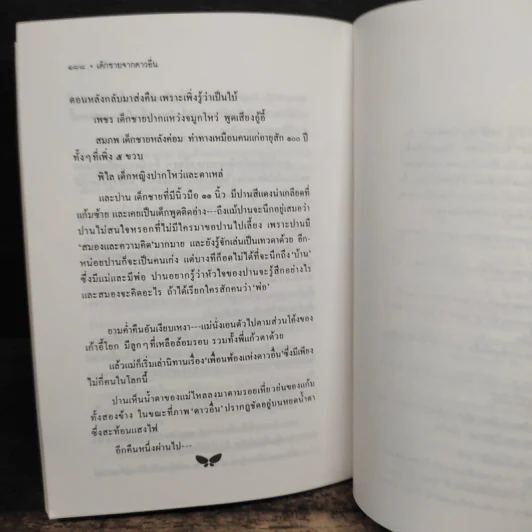 ๑๘๘ • เด็กชายจากดาวอื่น
ตอนหลังกลับมาส่งคืน เพราะเพิ่งรู้ว่าเป็นใบ้
เพชร เด็กชายปากแหว่งจมูกโหว่ พูดเสียงอู้อี้
สมภพ เด็กชายหลังค่อม ท่าทางเหมือนคนแก่อายุสัก ๑๐๐ ปี
ทั้งๆที่เพิ่ง ๕ ขวบ
พิไล เด็กหญิงปากโหว่และตาเหล่
และปาน เด็กชายที่มีนิ้วมือ ๑๑ นิ้ว มีปานสีแดงน่าเกลียดที่
แก้มซ้าย และเคยเป็นเด็กพูดติดอ่าง---ถึงแม้ปานจะนึกอยู่เสมอว่า
ปานไม่สนใจหรอกที่ไม่มีใครมาขอปานไปเลี้ยง เพราะปานมี
'สมองและความคิด'มากมาย และยังรู้จักเล่นเป็นเทวดาด้วย อีก-
หน่อยปานก็จะเป็นคนเก่ง แต่บางทีก็อดไม่ได้ที่จะนึกถึง'บ้าน'
ซึ่งมีแม่และมีพ่อ ปานอยากรู้ว่าหัวใจของปานจะรู้สึกอย่างไร
และสมองจะคิดอะไร ถ้าได้เรียกใครสักคนว่า'พ่อ'
ยามค่ำคืนอันเงียบเหงา---แม่นั่งเอนตัวไปตามส่วนโค้งของ
เก้าอี้โยก มีลูกๆที่เหลือล้อมรอบ รวมทั้งพี่แก้วตาด้วย
แล้วแม่ก็เริ่มเล่านิทานเรื่อง'เพื่อนพ้องแห่งดาวอื่น'ซึ่งมีเพียง
ไม่กี่คนในโลกนี้
ปานเห็นน้ำตาของแม่ไหลลงมาตามรอยเหี่ยวย่นของแก้ม
ทั้งสองข้าง ในขณะที่ภาพ'ดาวอื่น'ปรากฏชัดอยู่บนหยดน้ำตา
ซึ่งสะท้อนแสงไฟ
อีกคืนหนึ่งผ่านไป---